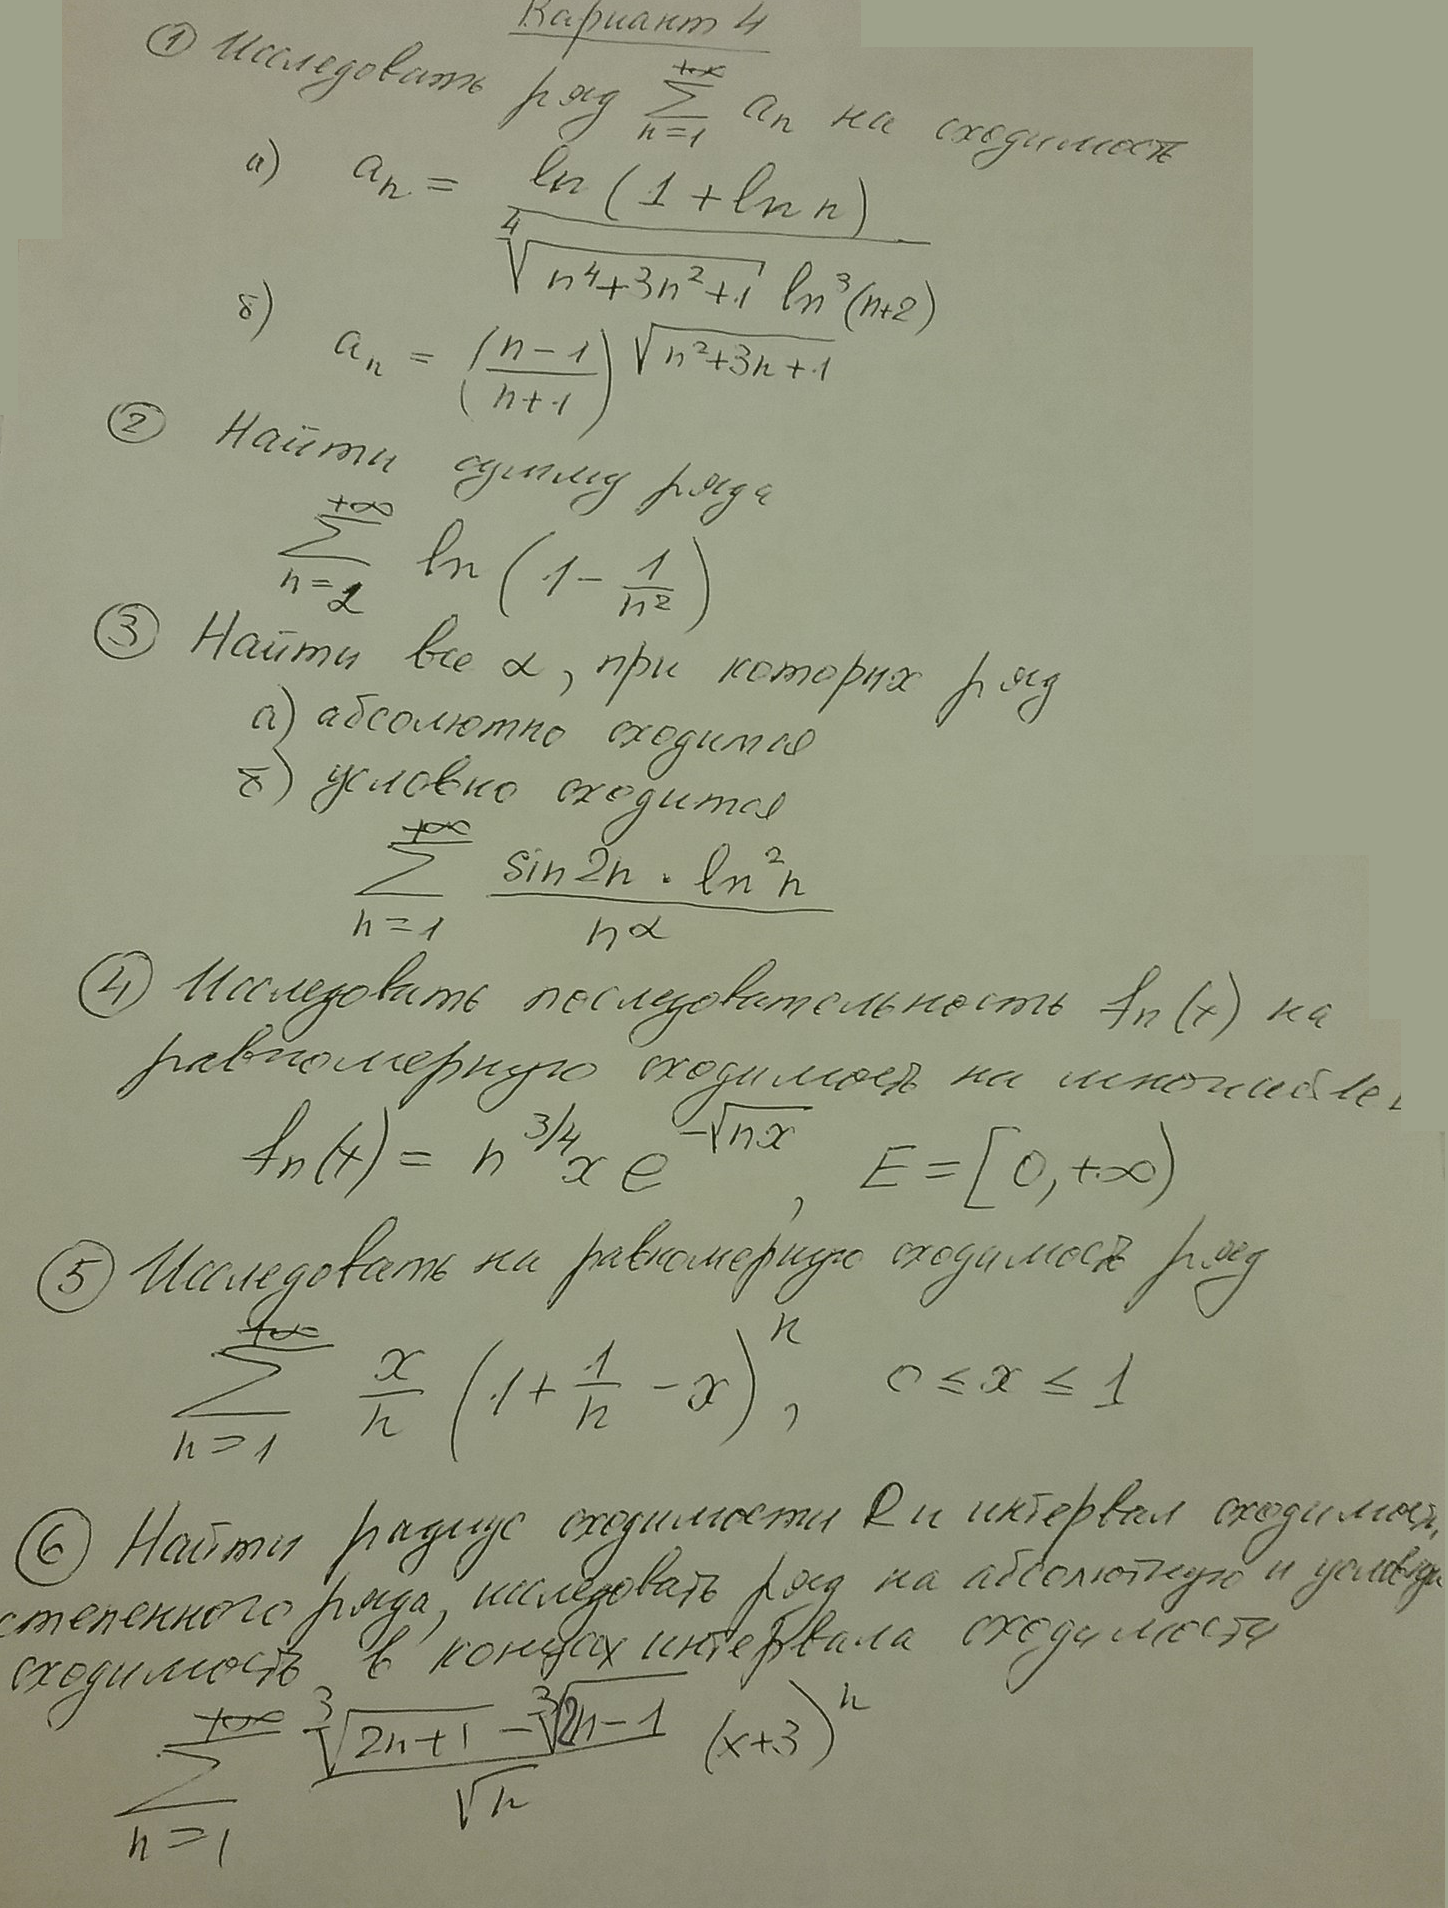 Вариант 4
① Исследовать ряд \sum_{n=1}^{+\infty} a_n на сходимость
а) a_n = \frac{\ln(1+\ln n)}{\sqrt[4]{n^4+3n^2+1} \ln^3(n+2)}
б) a_n = \left(\frac{n-1}{n+1}\right) \sqrt{n^2+3n+1}
② Найти сумму ряда
\sum_{n=2}^{+\infty} \ln\left(1-\frac{1}{n^2}\right)
③ Найти все α, при которых ряд
а) абсолютно сходится
б) условно сходится
\sum_{n=1}^{+\infty} \frac{\sin 2n \cdot \ln^2 n}{n^α}
④ Исследовать последовательность f_n(x) на
равномерную сходимость на
f_n(x) = n^{3/4} x e^{-\sqrt{nx}}, E = [0, +∞)
⑤ Исследовать на равномерную сходимость ряд
\sum_{n=1}^{+\infty} \frac{x}{n} \left(1+\frac{1}{n}-x\right)^n, 0 ≤ x ≤ 1
⑥ Найти радиус сходимости R и интервал сходимости
степенного ряда, исследовать ряд на абсолютную и условную
сходимость в концах интервала сходимости
\sum_{n=1}^{+\infty} \frac{\sqrt[3]{2n+1} - \sqrt[3]{2n-1}}{\sqrt{n}} (x+3)^n